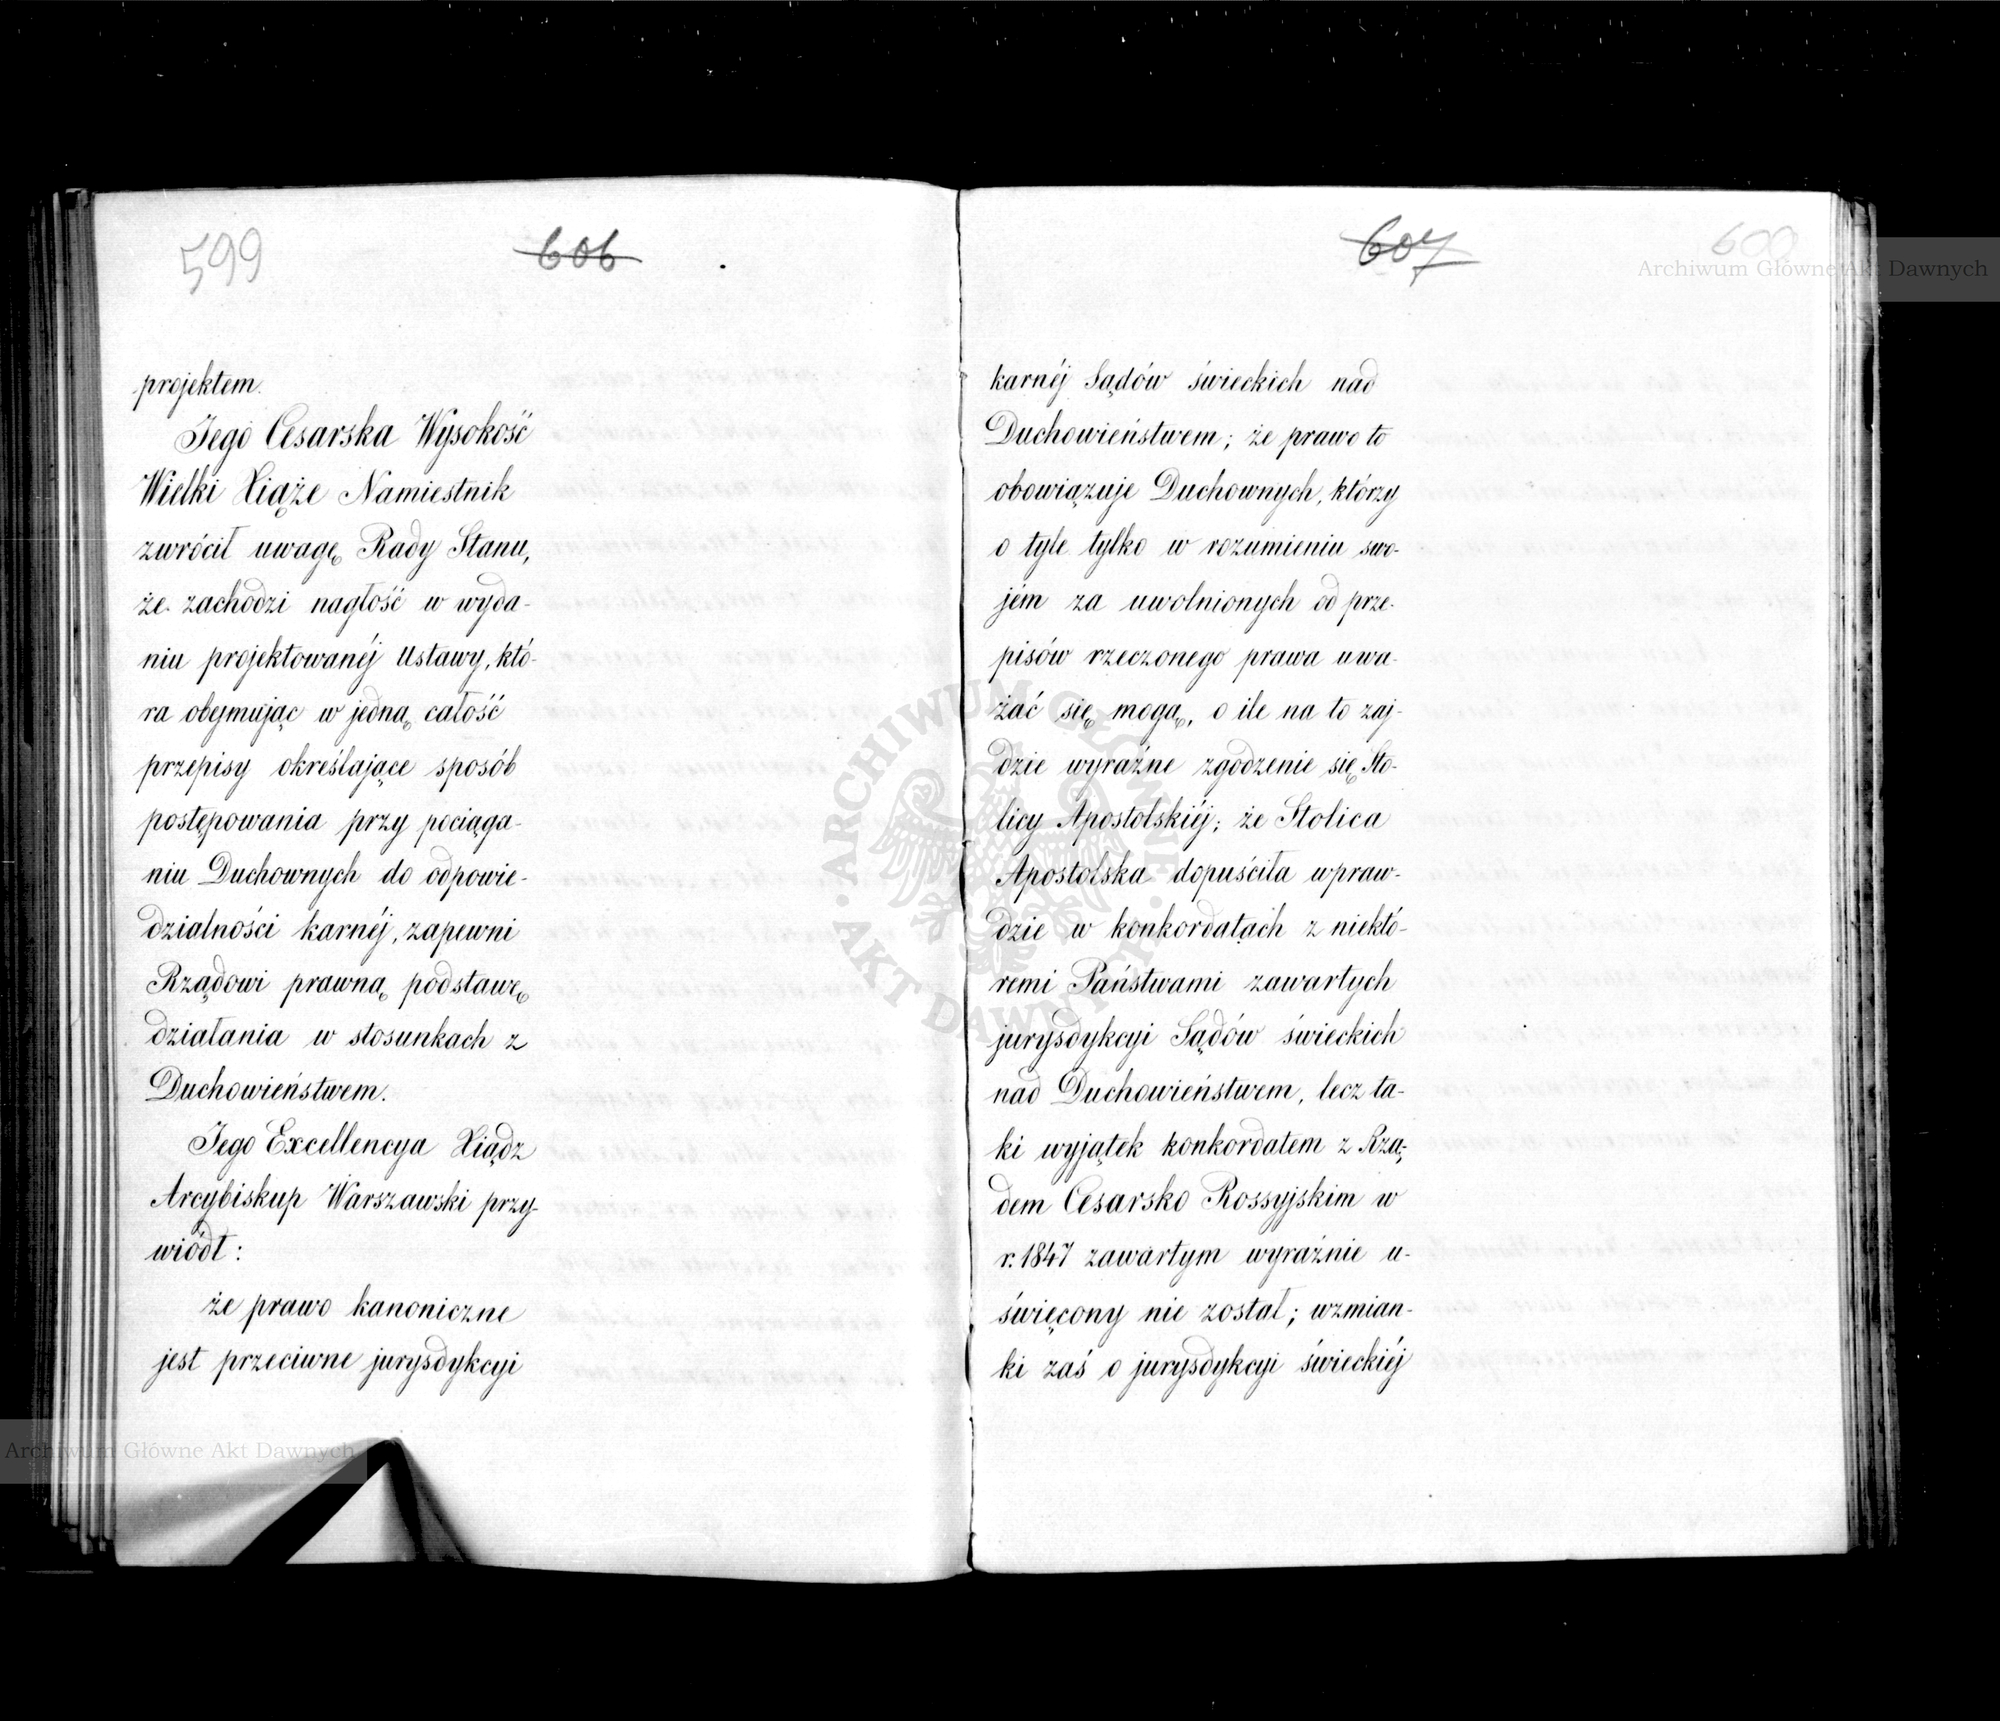 599
606
projektem.
Jego Cesarska Wysokość
Wielki Xiąże Namiestnik
zwrócił uwagę Rady Stanu,
że zachodzi nagłość w wyda-
niu projektowanéj Ustawy, któ-
ra obejmując w jedną całość
przepisy określające sposób
postępowania przy pociąga-
niu Duchownych do odpowie-
dzialności karnéj, zapewni
Rządowi prawną podstawę
działania w stosunkach z
Duchowieństwem.
Jego Excellencya Xiądz
Arcybiskup Warszawski przy-
wiódł:
że prawo kanoniczne
jest przeciwne jurysdykcyi
607
600
karnéj Sądów świeckich nad
Duchowieństwem; że prawo to
obowiązuje Duchownych, którzy
o tyle tylko w rozumieniu swo-
jém za uwolnionych od prze-
pisów rzeczonego prawa uwa-
żać się mogą, o ile na to zaj-
dzie wyraźne zgodzenie się Sto-
licy Apostolskiéj; że Stolica
Apostolska dopuściła wpraw-
dzie w konkordatach z niektó-
remi Państwami zawartych
jurysdykcyi Sądów świeckich
nad Duchowieństwem, lecz ta-
ki wyjątek konkordatem z Rzą-
dem Cesarsko Rossyjskim w
r. 1847 zawartym wyraźnie u-
święcony nie został; wzmian-
ki zaś o jurysdykcyi świeckiéj
Archiwum Główne Akt Dawnych
Archiwum Główne Akt Dawnych
ARCHIWUM GŁÓWNE · AKT DAWNYCH ·